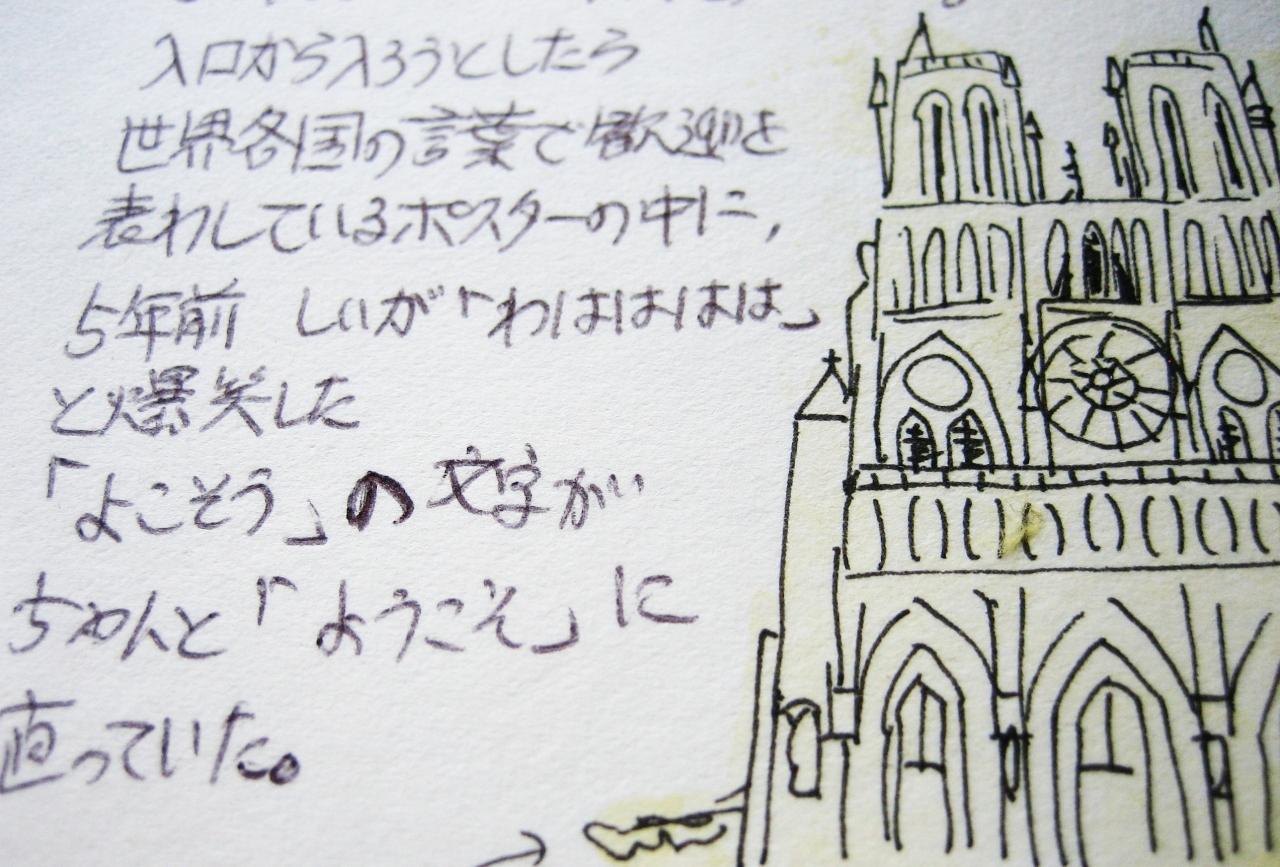 入口から入ろうとしたら
世界各国の言葉で歓迎を
表わしているポスターの中に、
5年前 しいが「わはははは」
と爆笑した
「よこそう」の文字が
ちゃんと「ようこそ」に
直っていた。